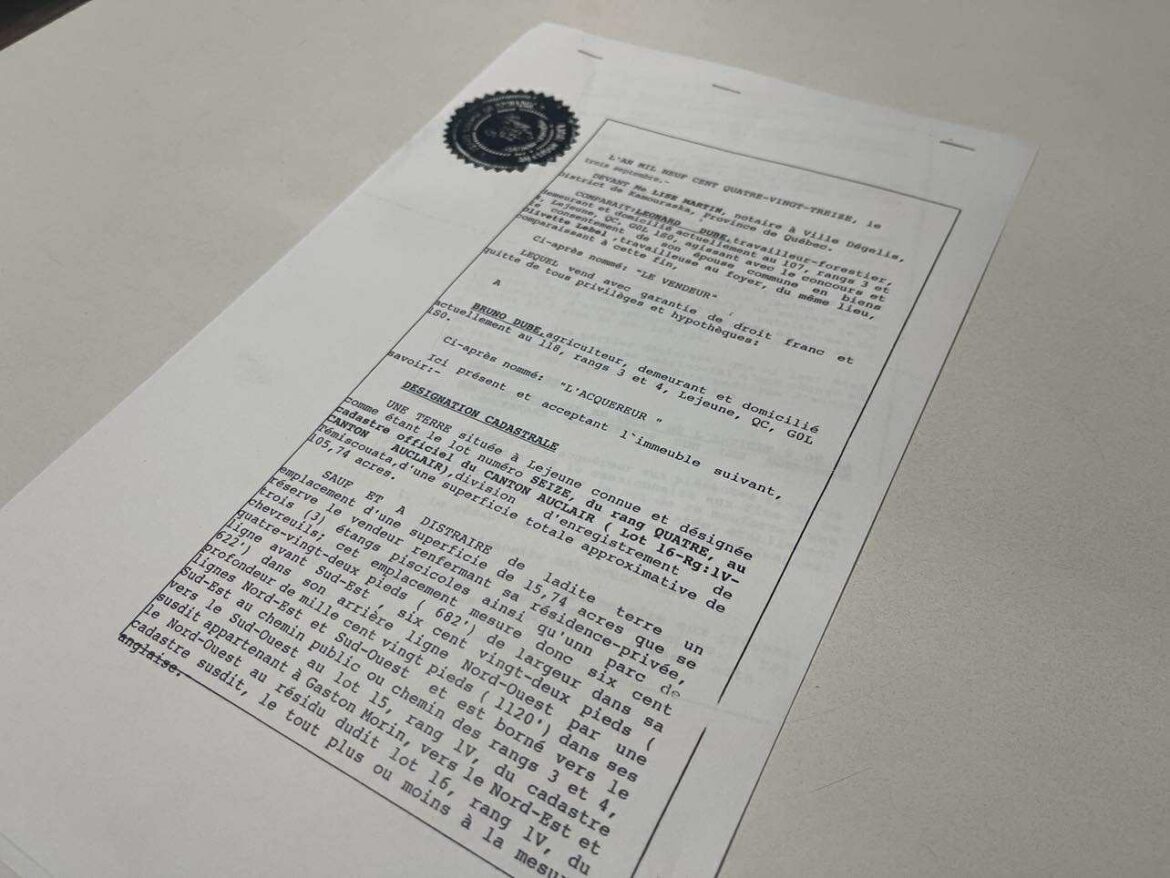 L'AN MIL NEUF CENT QUATRE-VINGT-TREIZE, le
trois septembre.-
DEVANT Me LISE MARTIN, notaire à Ville Dégelis,
district de Kamouraska, Province de Québec.
COMPARAIT:LEONARD DUBE,travailleur-forestier,
demeurant et domicilié actuellement au 107, rangs 3 et
4, Lejeune, QC, G0L 1S0, agissant avec le concours et
le consentement de son épouse commune en biens
Olivette Lebel ,travailleuse au foyer, du même lieu,
comparaissant à cette fin,
Ci-après nommé: "LE VENDEUR"
LEQUEL vend avec garantie de droit franc et
quitte de tous privilèges et hypothèques:
A
BRUNO DUBE,agriculteur, demeurant et domicilié
actuellement au 118, rangs 3 et 4, Lejeune, QC, G0L
1S0.
Ci-après nommé: "L'ACQUEREUR "
Ici présent et acceptant l'immeuble suivant,
savoir:-
DESIGNATION CADASTRALE
UNE TERRE située à Lejeune connue et désignée
comme étant le lot numéro SEIZE, du rang QUATRE, au
cadastre officiel du CANTON AUCLAIR ( Lot 16-Rg:1V-
CANTON AUCLAIR),division d'enregistrement de
Témiscouata,d'une superficie totale approximative de
105,74 acres.
SAUF ET A DISTRAIRE de ladite terre un
emplacement d'une superficie de 15,74 acres que se
réserve le vendeur renfermant sa résidence-privée,
trois (3) étangs piscicoles ainsi qu'unn parc de
chevreuils; cet emplacement mesure donc six cent
quatre-vingt-deux pieds ( 682') de largeur dans sa
ligne avant Sud-Est , six cent vingt-deux pieds (
622') dans son arrière ligne Nord-Ouest par une
profondeur de mille cent vingt pieds ( 1120') dans ses
lignes Nord-Est et Sud-Ouest et est borné vers le
Sud-Est au chemin public ou chemin des rangs 3 et 4,
vers le Sud-Ouest au lot 15, rang 1V, du cadastre
susdit appartenant à Gaston Morin, vers le Nord-Est et
le Nord-Ouest au résidu dudit lot 16, rang 1V, du
cadastre susdit, le tout plus ou moins à la mesu
anglaise.